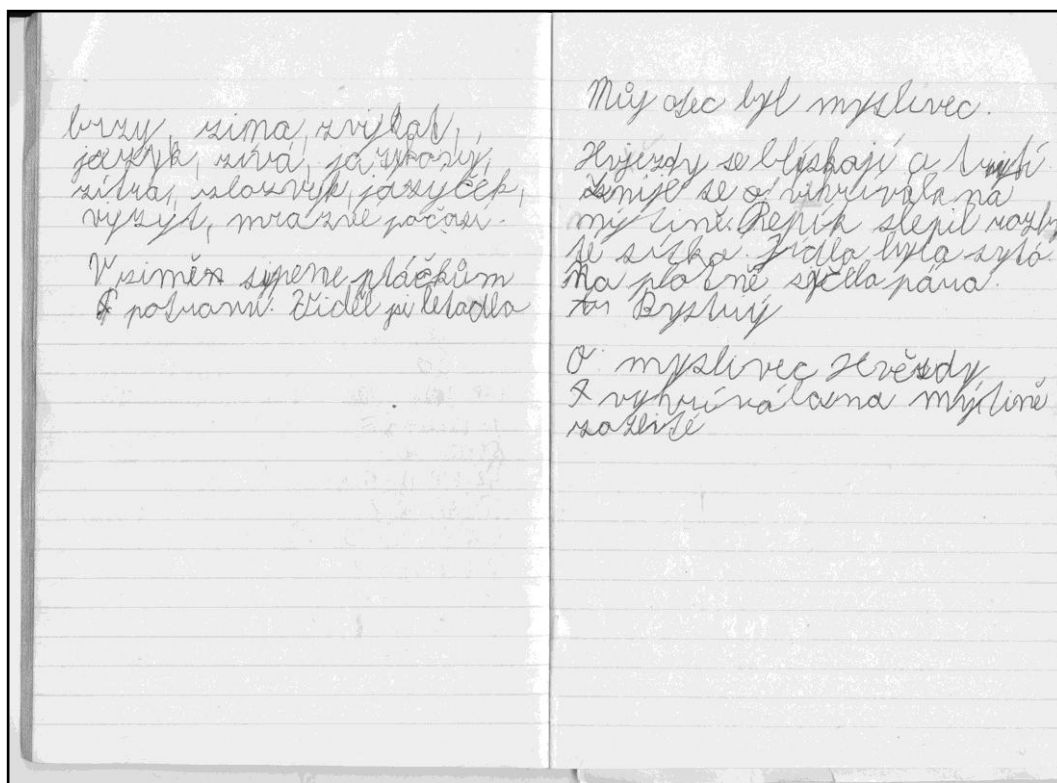 brzy, zima, zvykat,
jazyk, zívá, jazykový,
zítra, zlozvyk, jazyček,
vyzýt, mrazvé počasí.
V zimě sypeme ptáčkům
potravu. Viděl letadla
Můj otec byl myslivec.
Hvjezdy se blískají a
směje se a vihrívála na
mýtině. Řepík slepil rozbi
té sítka. Jídla byla sytá.
Na plotně syčela pára.
Bystrý
O. myslivec Hvězdy
vyhrívála na mýtině
rozbité